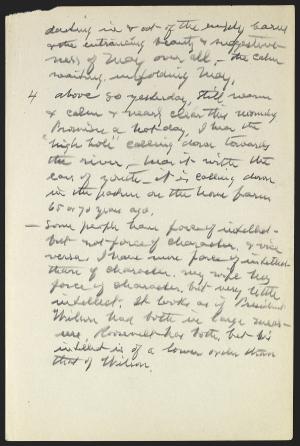 darting in & out of the empty barns
& the entrancing beauty & suggestive-
ness of May over all, - the calm
waiting, unfolding May,
4 above 80 yesterday, still warm
& calm & nearly clear this morning
Promise a hot day, I hear the
"high hole" calling down towards
the river, - hear it with the
ears of youth - it is calling down
in the pasture on the home farm
65 or 70 years ago.
- Some people have force of intellect-
but not force of character, & vice
versa, I have more force of intellect
than of character. my wife has
force of character, but very little
intellect. It looks as if President
Wilson had both in large meas-
ure, Roosevelt has both, but his
intellect is of a lower order than
that of Wilson.